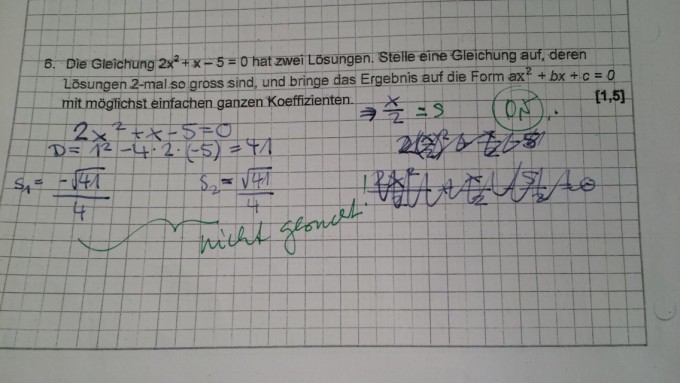 6. Die Gleichung 2x² + x – 5 = 0 hat zwei Lösungen. Stelle eine Gleichung auf, deren
Lösungen 2-mal so gross sind, und bringe das Ergebnis auf die Form ax² + bx + c = 0
mit möglichst einfachen ganzen Koeffizienten.
[1,5]
⇒ x/2 = s
2x² + x – 5 = 0
D = 1² – 4 · 2 · (–5) = 41
S₁ = –√41/4
S₂ = √41/4
nicht